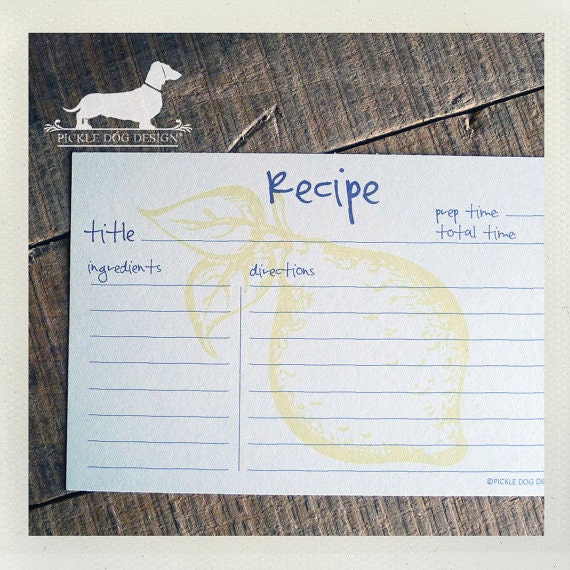 PICKLE DOG DESIGN®
Recipe
prep time:
total time:
title
ingredients
directions
©PICKLE DOG DE